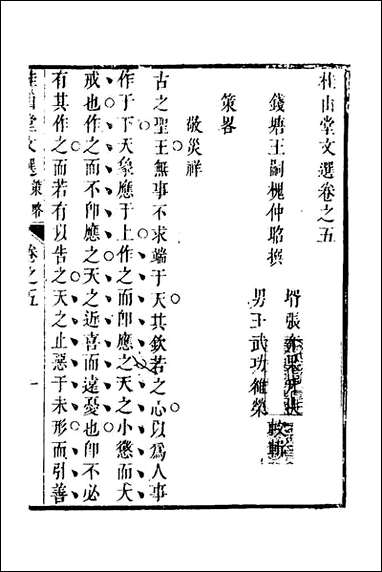 桂山堂文選卷之五
錢塘王嗣槐仲昭撰
壻張
男王武功維榮
較
策畧
敬災祥
古之聖王無事不求端于天其欽若之心以為人事
作于下天象應于上作之而卽應之天之小懲而大
戒也作之而不卽應之天之近喜而遠憂也卽不必
有其作之而若有以告之天之止惡于未形而引善
桂山堂文選 策略 卷之五 一